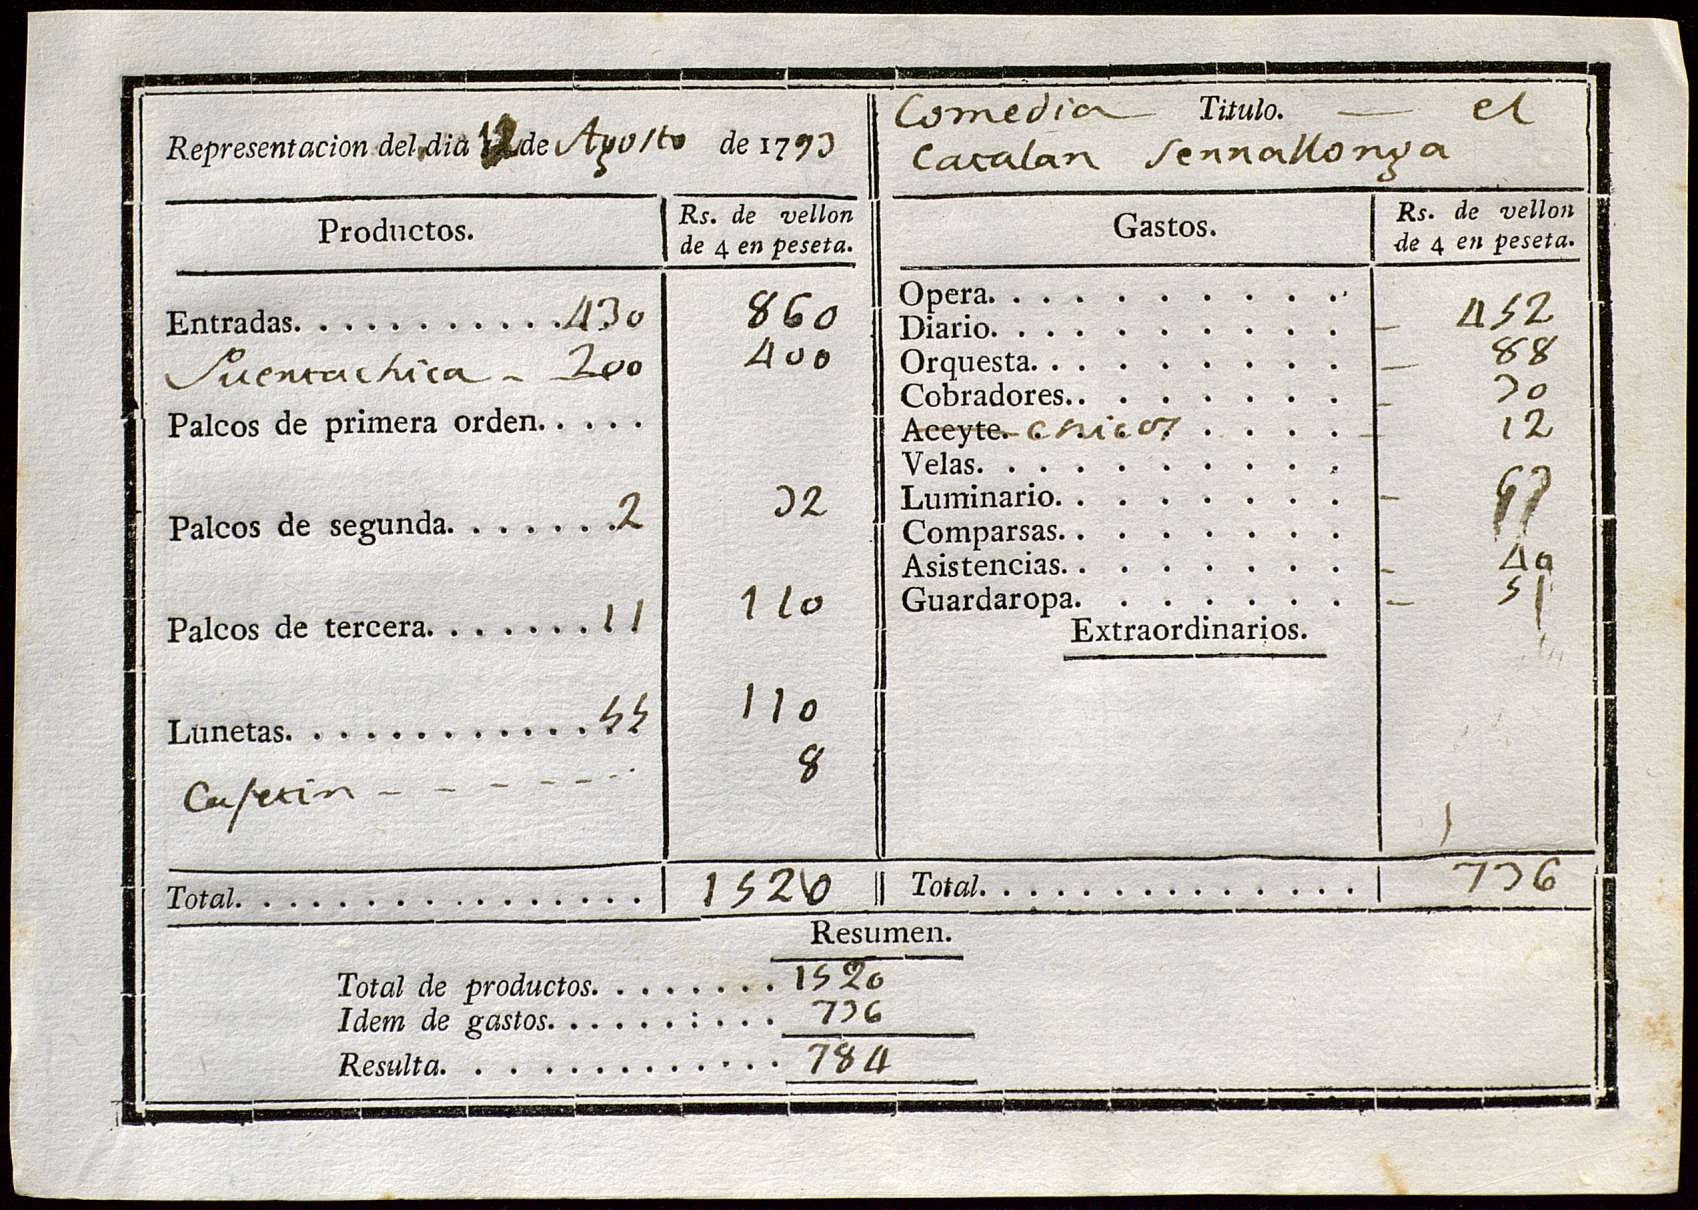 Representacion del dia 12 de Agosto de 1793
Comedia Titulo. — el
Catalan Serrallonga
Productos.
Rs. de vellon
de 4 en peseta.
Entradas. . . . . . . . . . . 430 860
Puertachica - 200 400
Palcos de primera orden. . . . .
Palcos de segunda. . . . . . . 2 32
Palcos de tercera. . . . . . . 11 110
Lunetas. . . . . . . . . . . . . 55 110
Cafetin - - - - - - 8
Total. . . . . . . . . . . . . . . . 1520
Gastos.
Rs. de vellon
de 4 en peseta.
Opera. . . . . . . . . .
Diario. . . . . . . . . . - 452
Orquesta. . . . . . . . . - 88
Cobradores. . . . . . . . - 30
Aceyte. chicos . . . . - 12
Velas. . . . . . . . . .
Luminario. . . . . . . . - 63
Comparsas. . . . . . . .
Asistencias. . . . . . . . - 40
Guardaropa. . . . . . . - 51
Extraordinarios.
Total. . . . . . . . . . . . . . . 736
Resumen.
Total de productos. . . . . . . . 1520
Idem de gastos. . . . . . . . . . 736
Resulta. . . . . . . . . . . . 784